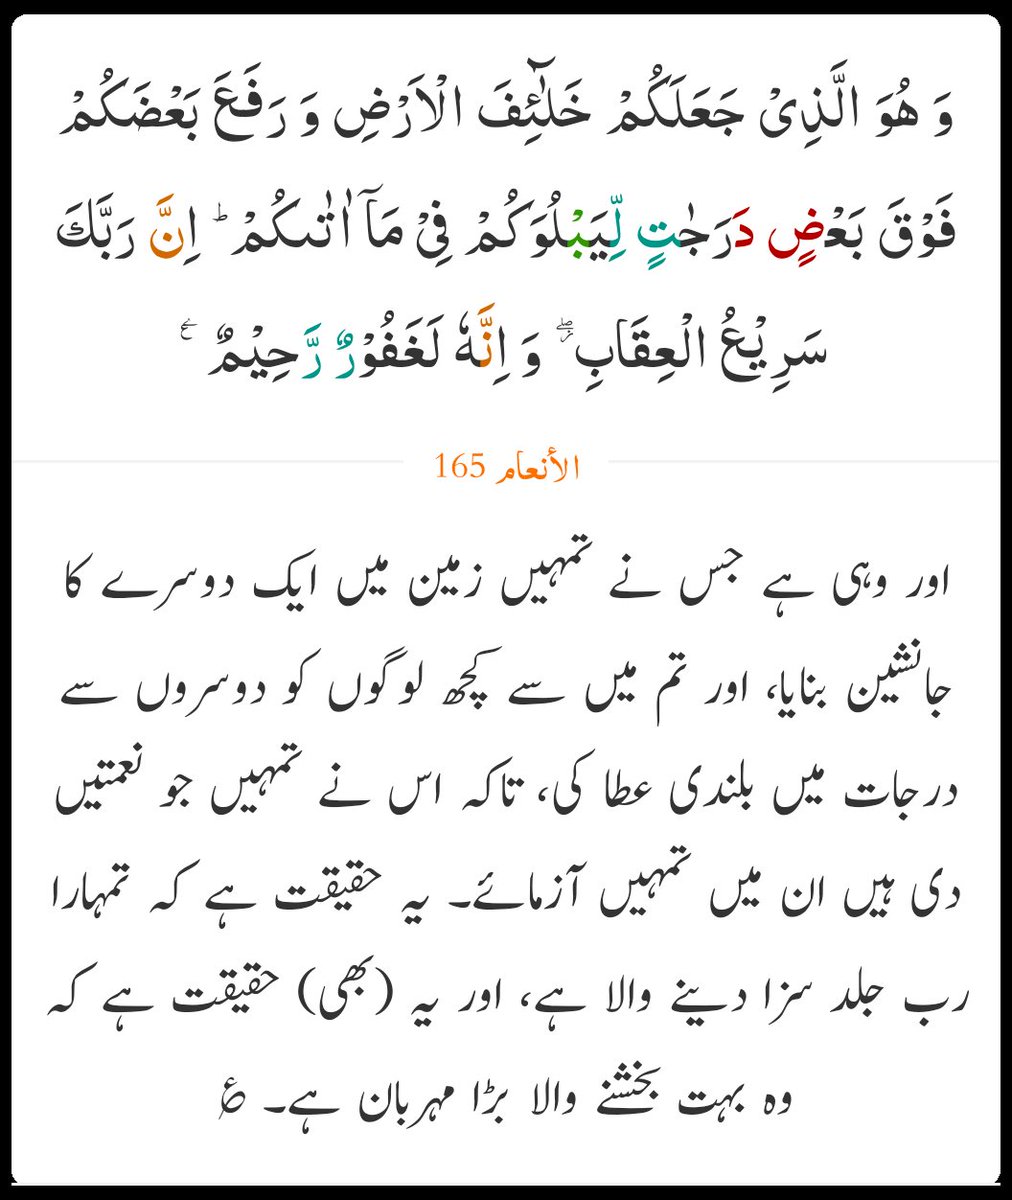 وَ هُوَ الَّذِیْ جَعَلَكُمْ خَلٰٓئِفَ الْاَرْضِ وَ رَفَعَ بَعْضَكُمْ
فَوْقَ بَعْضٍ دَرَجٰتٍ لِّیَبْلُوَكُمْ فِیْ مَاۤ اٰتٰىكُمْ ؕ اِنَّ رَبَّكَ
سَرِیْعُ الْعِقَابِ ۖۗ وَ اِنَّهٗ لَغَفُوْرٌ رَّحِیْمٌ ۠
الأنعام 165
اور وہی ہے جس نے تمہیں زمین میں ایک دوسرے کا
جانشین بنایا، اور تم میں سے کچھ لوگوں کو دوسروں سے
درجات میں بلندی عطا کی، تاکہ اس نے تمہیں جو نعمتیں
دی ہیں ان میں تمہیں آزمائے۔ یہ حقیقت ہے کہ تمہارا
رب جلد سزا دینے والا ہے، اور یہ (بھی) حقیقت ہے کہ
وہ بہت بخشنے والا بڑا مہربان ہے۔ ؏